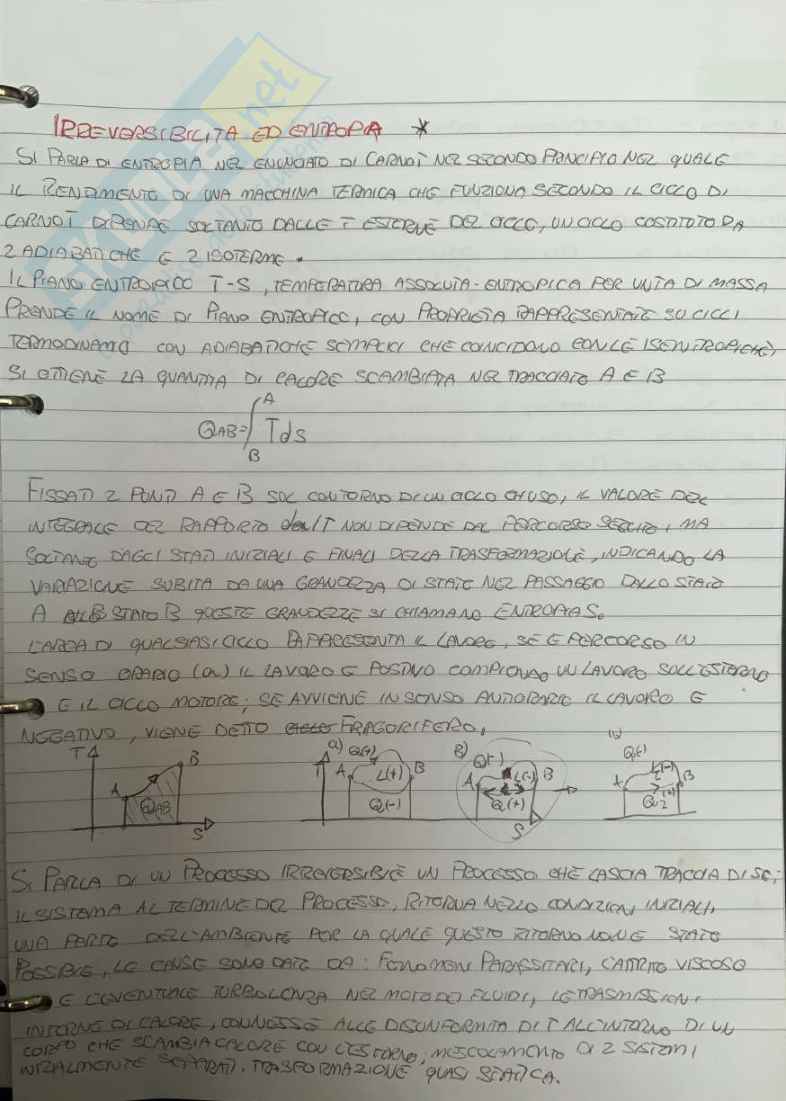 IRREVERSIBILITA ED ENTROPIA *
SI PARLA DI ENTROPIA NEL ENUNCIATO DI CARNOT NEL SECONDO PRINCIPIO NEL QUALE
IL RENDIMENTO DI UNA MACCHINA TERMICA CHE FUNZIONA SECONDO IL CICLO DI
CARNOT DIPENDE SOLTANTO DALLE T ESTERNE DEL CICLO, UN CICLO COSTITUTO DA
2 ADIABATICHE E 2 ISOTERME.
IL PIANO ENTROPICO T-S, TEMPERATURA ASSOLUTA-ENTROPICA PER UNITA DI MASSA
PRENDE IL NOME DI PIANO ENTROPICO, CON PROPRIETA RAPPRESENTATE SU CICLI
TERMODINAMICI CON ADIABATICHE SEMPLICI CHE COINCIDONO CON LE ISENTROPICHE,
SI OTTIENE LA QUANTITA DI CALORE SCAMBIATA NEL TRACCIATO A E B
QAB=∫ T ds
A
B
FISSATI 2 PUNTI A E B SUL CONTORNO DI UN CICLO CHIUSO, IL VALORE DEL
INTEGRALE DEL RAPPORTO NON DIPENDE DAL PERCORSO SEGUITO, MA
SOLTANTO DAGLI STATI INIZIALI E FINALI DELLA TRASFORMAZIONE, INDICANDO LA
VARIAZIONE SUBITA DA UNA GRANDEZZA DI STATO NEL PASSAGGIO DALLO STATO
A STATO B QUESTE GRANDEZZE SI CHIAMANO ENTROPIA S.
L'AREA DI QUALSIASI CICLO RAPPRESENTA IL LAVORO, SE E PERCORSO IN
SENSO ORARIO IL LAVORO E POSITIVO COMPIENDO UN LAVORO SULL'ESTERNO
E IL CICLO MOTORE; SE AVVIENE IN SENSO ANTIORARIO IL LAVORO E
NEGATIVO, VIENE DETTO FRIGORIFERO.
T A B QAB S
a) Q(+) T A L(+) B Q(-)
B) Q(-) A L(-) B Q(+) S
Q(-) A L(-) B Q2(+)
SI PARLA DI UN PROCESSO IRREVERSIBILE UN PROCESSO CHE LASCIA TRACCIA DI SE;
IL SISTEMA AL TERMINE DEL PROCESSO, RITORNA NELLO CONDIZIONI INIZIALI,
UNA PARTE DELL'AMBIENTE PER LA QUALE QUESTO RITORNO NON E STATO
POSSIBILE, LE CAUSE SONO DATE DA: FENOMENI PARASSITARI, L'ATTRITO VISCOSO
E L'EVENTUALE TURBOLENZA NEL MOTO DEI FLUIDI, LE TRASMISSIONI
INTERNE DI CALORE, CONNESSE ALLE DISUNIFORMITA DI T ALL'INTERNO DI UN
CORPO CHE SCAMBIA CALORE CON L'ESTERNO, MESCOLAMENTO DI 2 SISTEMI
INIZIALMENTE SEPARATI. TRASFORMAZIONE QUASI STATICA.